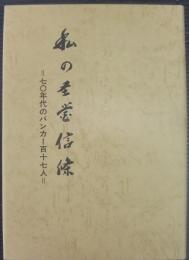 私の経営信条
=七〇年代のバンカー百十七人=